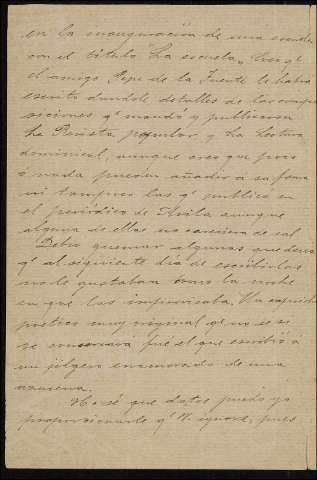 en la inauguración de una escuela
con el título "La escuela", Creo qe
el amigo Pepe de la Fuente le habrá
escrito dándole detalles de las compo
siciones qe mandó y publicaron
La Revista popular y La Lectura
dominical, aunque creo que poco
ó nada pueden añadir a su fama
ni tampoco las qe publicó en
el periódico de Avila aunque
alguna de ellas no careciera de sal
Debió quemar algunas que decia
qe al siguiente día de escribirlas
no le gustaban como la noche
en que las improvisaba. Un capricho
poético muy original qe no se si
se conservará fué el que escribió á
un jilguero enamorado de una
azucena.
No sé que datos puedo yo
proporcionarle qe V. ignore, pues